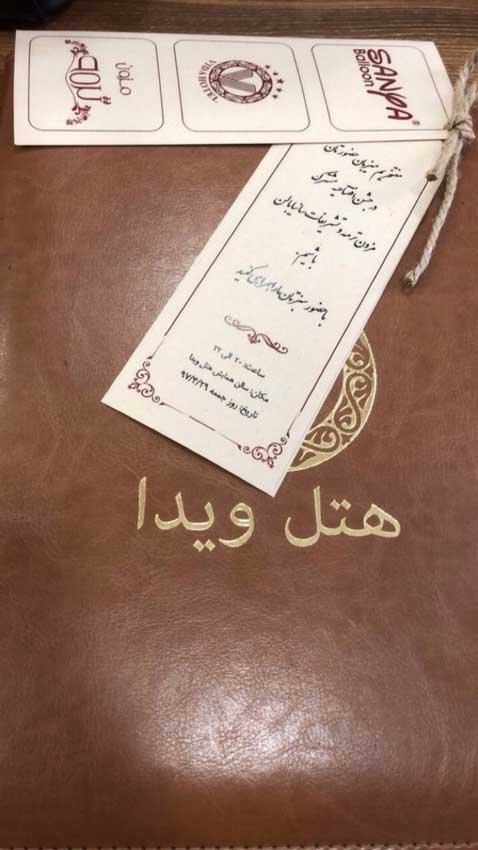 SANYA
Balloon
VIDA HOTEL
مزون
ترمه
مفتخریم میزبان حضورتان
در جشن افتتاحیه مشترک
مزون ترمه و تشریفات سانیا بالن
باشیم.
با حضور سبزتان ما را یاری کنید
ساعت: ۲۰ الی ۲۲
مکان: سالن همایش هتل ویدا
تاریخ: روز جمعه ۹۷/۴/۲۹
هتل ویدا